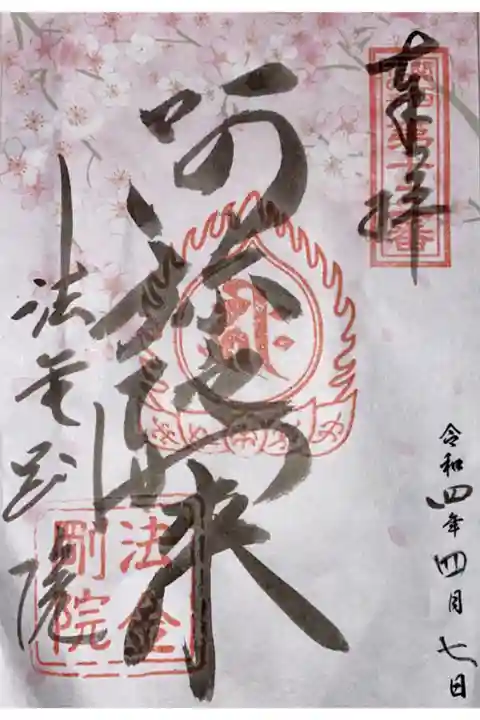 奉拝
第十三番
令和四年四月七日
阿弥陀如来
法金剛院
法金
剛院